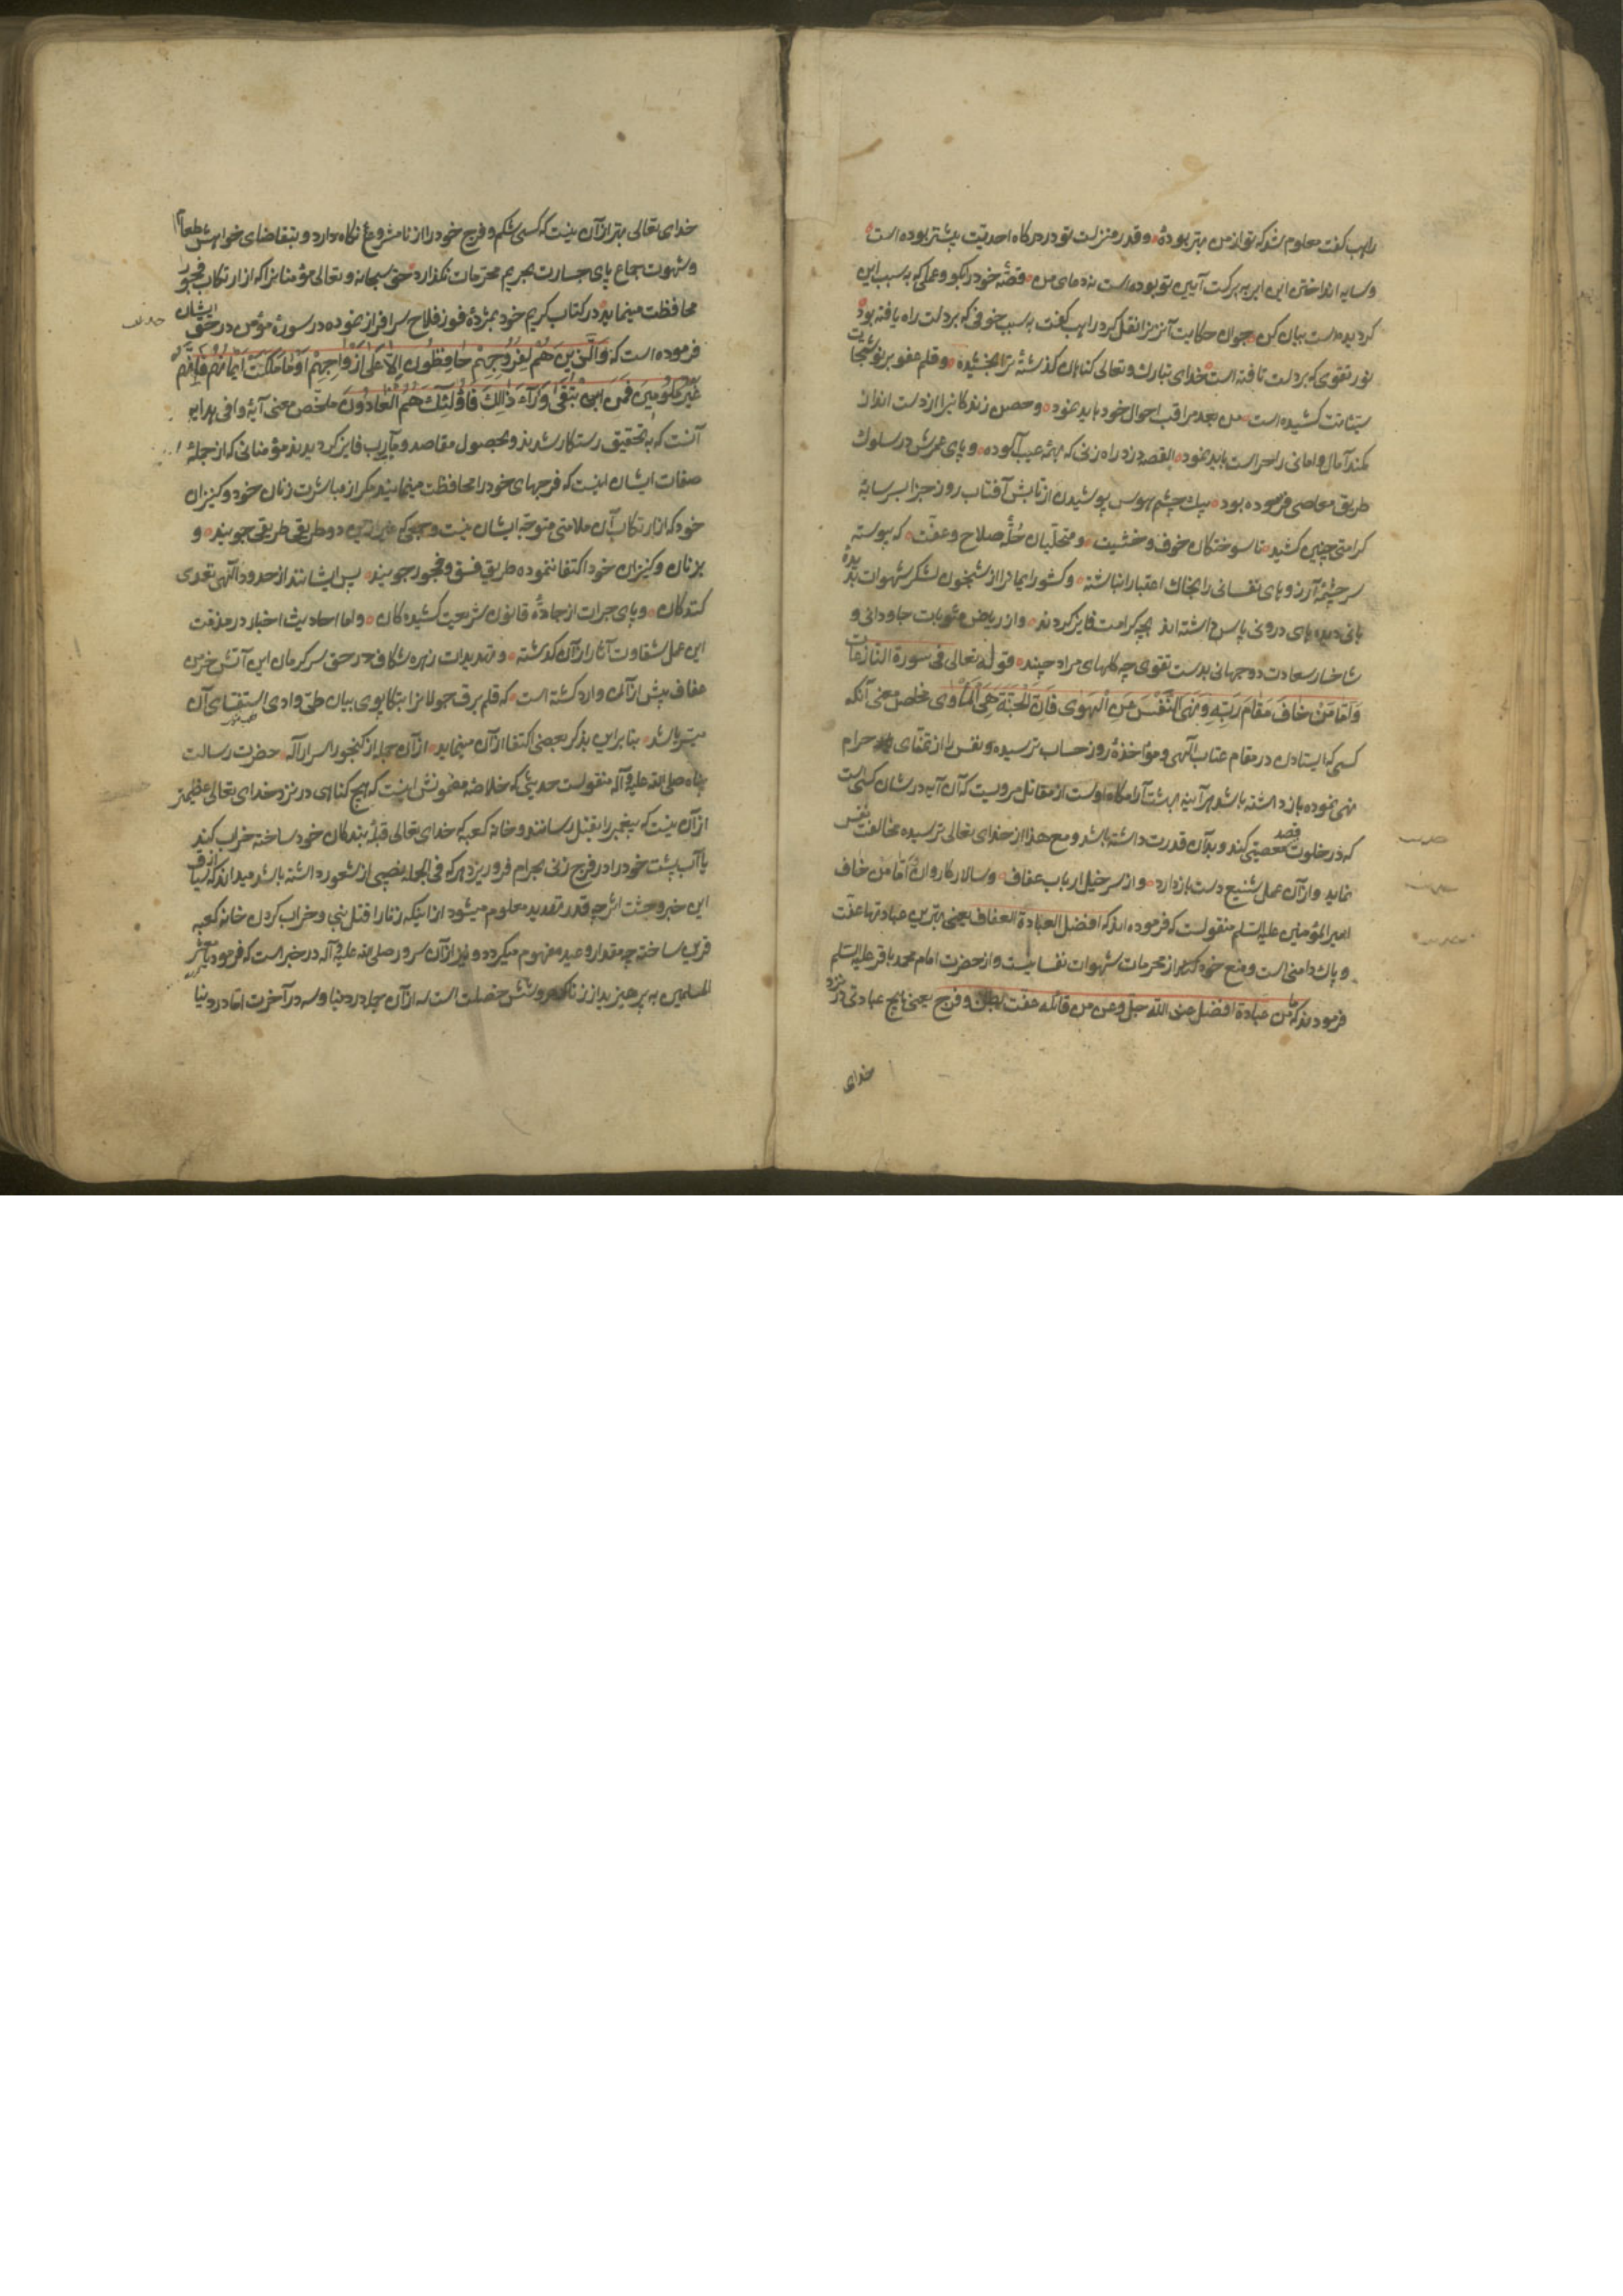 راهب گفت معلوم شد که تو از من بهتر بودهٔ و قدر منزلت تو در درگاه احدیّت بیشتر بوده است
و سایه انداختن این ابر به برکت آیین تو بوده است نه دعای من قصّهٔ خود را بگو و عملی که به سبب این
گردیده است بیان کن جوان حکایت آن زن را نقل کرد راهب گفت به سبب خوفی که بر دلت راه یافته بود
نور تقوی که بر دلت تافته است خدای تبارک و تعالی گناهان گذشتهٔ ترا بخشیده و قلم عفو بر نوشتجات
کشیده است من بعد مراقب احوال خود باید نمود و حصن زندگانی را از دست انداز
کمند آمال و امانی حراست باید نمود القصه دزد راه زنی که همه عیب آلوده و پای عمرش در سلوک
طریق معاصی فرسوده بود بیک چشم هوس پوشیدن از تابش آفتاب روز جزا بسر سایهٔ
کرامتی چنین کشید تا سوختگان خوف و خشیت و متحلّیان حُلّهٔ صلاح و عفّت که پیوسته
سرچشمهٔ آرزوهای نفسانی را بخاک اعتبار انباشته و کشور ایمانرا از شبیخون لشکر شهوات بدیدهٔ
بانی دیده های درونی پاس داشته اند بچه کرامت فایز گردند و از ریاض مثوبات جاودانی و
شاخسار سعادت دو جهانی بدست تقوی چه گلهای مراد چینند قوله تعالی فی سورة النازعات
وَاَمّا مَنْ خافَ مَقامَ رَبِّهِ وَنَهَی النَّفْسَ عَنِ الْهَوی فَاِنَّ الْجَنَّةَ هِیَ الْمَأوی مخلص معنی آنکه
کسی که ایستادن در مقام عتاب الهی و مؤاخذهٔ روز حساب ترسیده و نفس را از تمنّای حرام
نهی نموده باز داشته باشد هر آینه بهشت آرامگاه اوست از مقاتل مرویست که آن آیه در شان کسی است
که در خلوت قصد معصیتی کند و بدآن قدرت داشته باشد و مع هذا از خدای تعالی ترسیده مخالفت نفس
نماید و از آن عمل شنیع دست باز دارد و از سر خیل ارباب عفاف و سالار کاروان وَاَمّا مَن خاف
امیرالمؤمنین علیه السلم منقولست که فرموده اند که افضل العبادة العفاف یعنی بهترین عبادتها عفّت
و پاک دامنی است و منع خود کردن از محرمات شهوات نفسانیست و از حضرت امام محمد باقر علیه السلم
فرمودند که ما من عبادة افضل عند الله جلّ و عز من عفّت بطن و فرج یعنی هیچ عبادتی در نزد
خدای
خدای تعالی بهتر از آن نیست که کسی شکم و فرج خود را از نامشروع نگاه دارد و بتقاضای خواهش طعام
و شهوت جماع پای جسارت بحریم محرّمات نگذارد حق سبحانه و تعالی مؤمنانرا که از ارتکاب فجور
محافظت مینمایند در کتاب کریم خود بمژدهٔ فوز فلاح سرافراز نموده در سورهٔ مؤمن در حق ایشان
فرموده است که وَالَّذینَ هُمْ لِفُرُوجِهِمْ حافِظُون اِلّا عَلی اَزْواجِهِمْ اَوْ ما مَلَکَتْ اَیْمانُهُم فَاِنَّهُم
غَیْرُ مَلُومینَ فَمَن ابْتَغی وَرآءَ ذالِکَ فَاُولئِکَ هُمُ الْعادُونَ ملخّص معنی آیهٔ وافی هدایه
آنست که بتحقیق رستگار شدند و بحصول مقاصد و مآرب فایز گردیدند مؤمنانی که از جملهٔ
صفات ایشان اینست که فرجهای خود را محافظت مینمایند مگر از مباشرت زنان خود و کنیزان
خود که از ارتکاب آن ملامتی متوجّه ایشان نیست و کسی که غیر این دو طریق طریقی جویند و
بزنان و کنیزان خود اکتفا ننموده طریق فسق و فجور جویند پس ایشانند از حدود الهی تعدی
کنندگان و پای جرات از جادّهٔ قانون شریعت کشیده گان و اما احادیث اخبار در مذمّت
این عمل شقاوت آثار از آن گذشته و تهدیدات زهره شکاف در حق سرگرمان این آتش خرمن
عفاف بیش از آن وارد گشته است که قلم برق جولانرا بتکاپوی بیان طیّ وادی استقصای آن
میسّر باشد بنا براین بذکر بعضی اکتفا از آن مینماید از آن جمله از گنجور اسرار آله حضرت رسالت
پناه صلی الله علیه و آله منقولست حدیثی که خلاصهٔ مضمونش اینست که هیچ گناهی در نزد خدای تعالی عظیمتر
از آن نیست که پیغمبر را بقتل رسانند و خانه کعبه که خدای تعالی قبلهٔ بندگان خود ساخته خراب کنند
یا آب پشت خود را در فرج زنی بحرام فرو ریزد هر که فی الجمله نصیبی از شعور داشته باشد میداند که از سیاق
این خبر وحشت اثر چه قدر تهدید معلوم میشود از اینکه زنا را قتل نبی و خراب کردن خانه کعبه
قرین ساخته چه مقدار وعید مفهوم میگردد و نیز از آن سرور صلی الله علیه و آله در خبر است که فرمود یا معشر
المسلمین به پرهیزید از زنا که در او شش خصلت است سه از آن جمله در دنیا و سه در آخرت امّا در دنیا